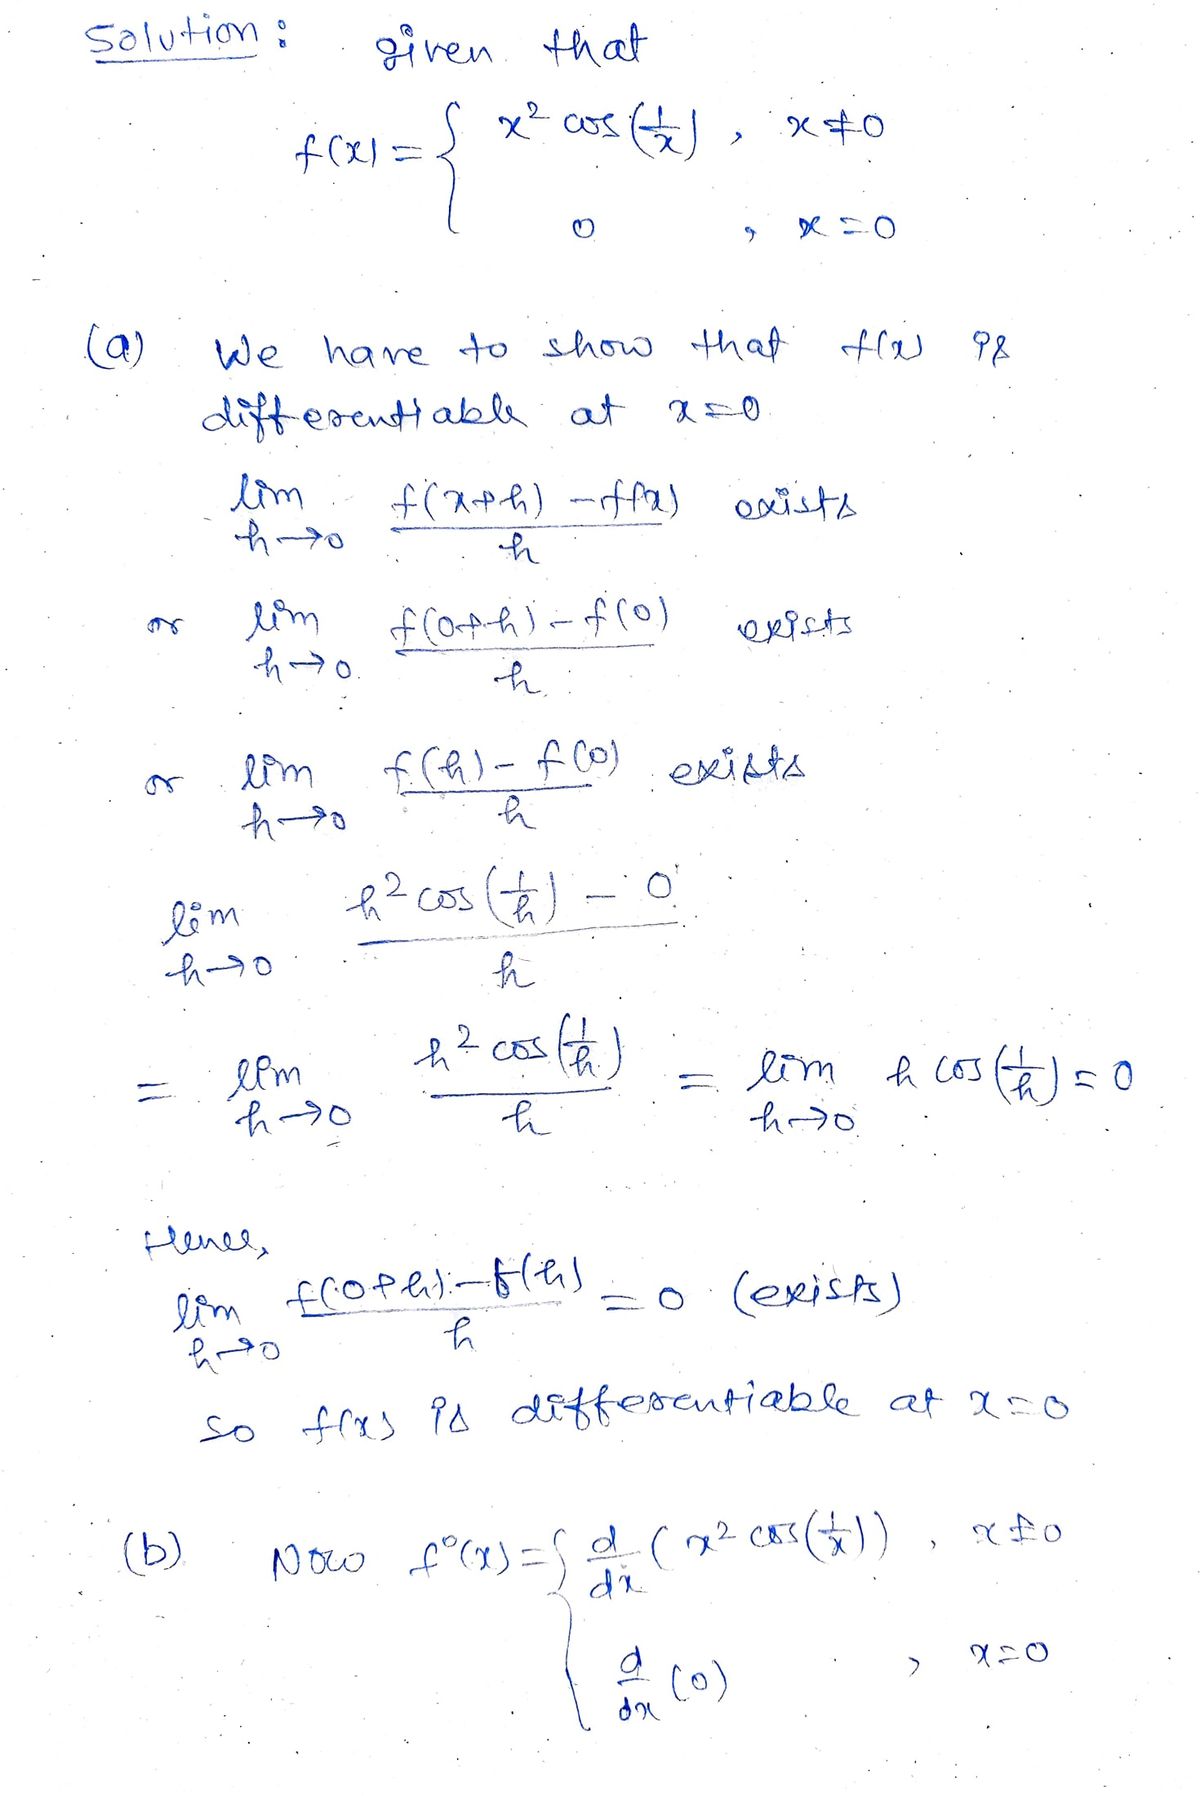 Solution: given that
f(x) = { x² cos(1/x) , x ≠ 0
0 , x = 0
(a) We have to show that f(x) is
differentiable at x = 0
lim h→0 (f(x+h) - f(x))/h exists
or lim h→0 (f(0+h) - f(0))/h exists
or lim h→0 (f(h) - f(0))/h exists
lim h→0 (h² cos(1/h) - 0)/h
= lim h→0 (h² cos(1/h))/h = lim h→0 h cos(1/h) = 0
Hence,
lim h→0 (f(0+h) - f(h))/h = 0 (exists)
so f(x) is differentiable at x = 0
(b) Now f'(x) = { d/dx (x² cos(1/x)) , x ≠ 0
d/dx (0) , x = 0